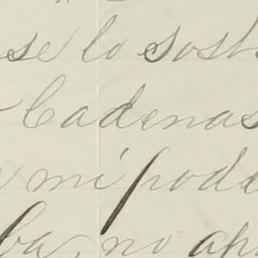 se lo sost
Cadenas
mi pode
ba, no ap